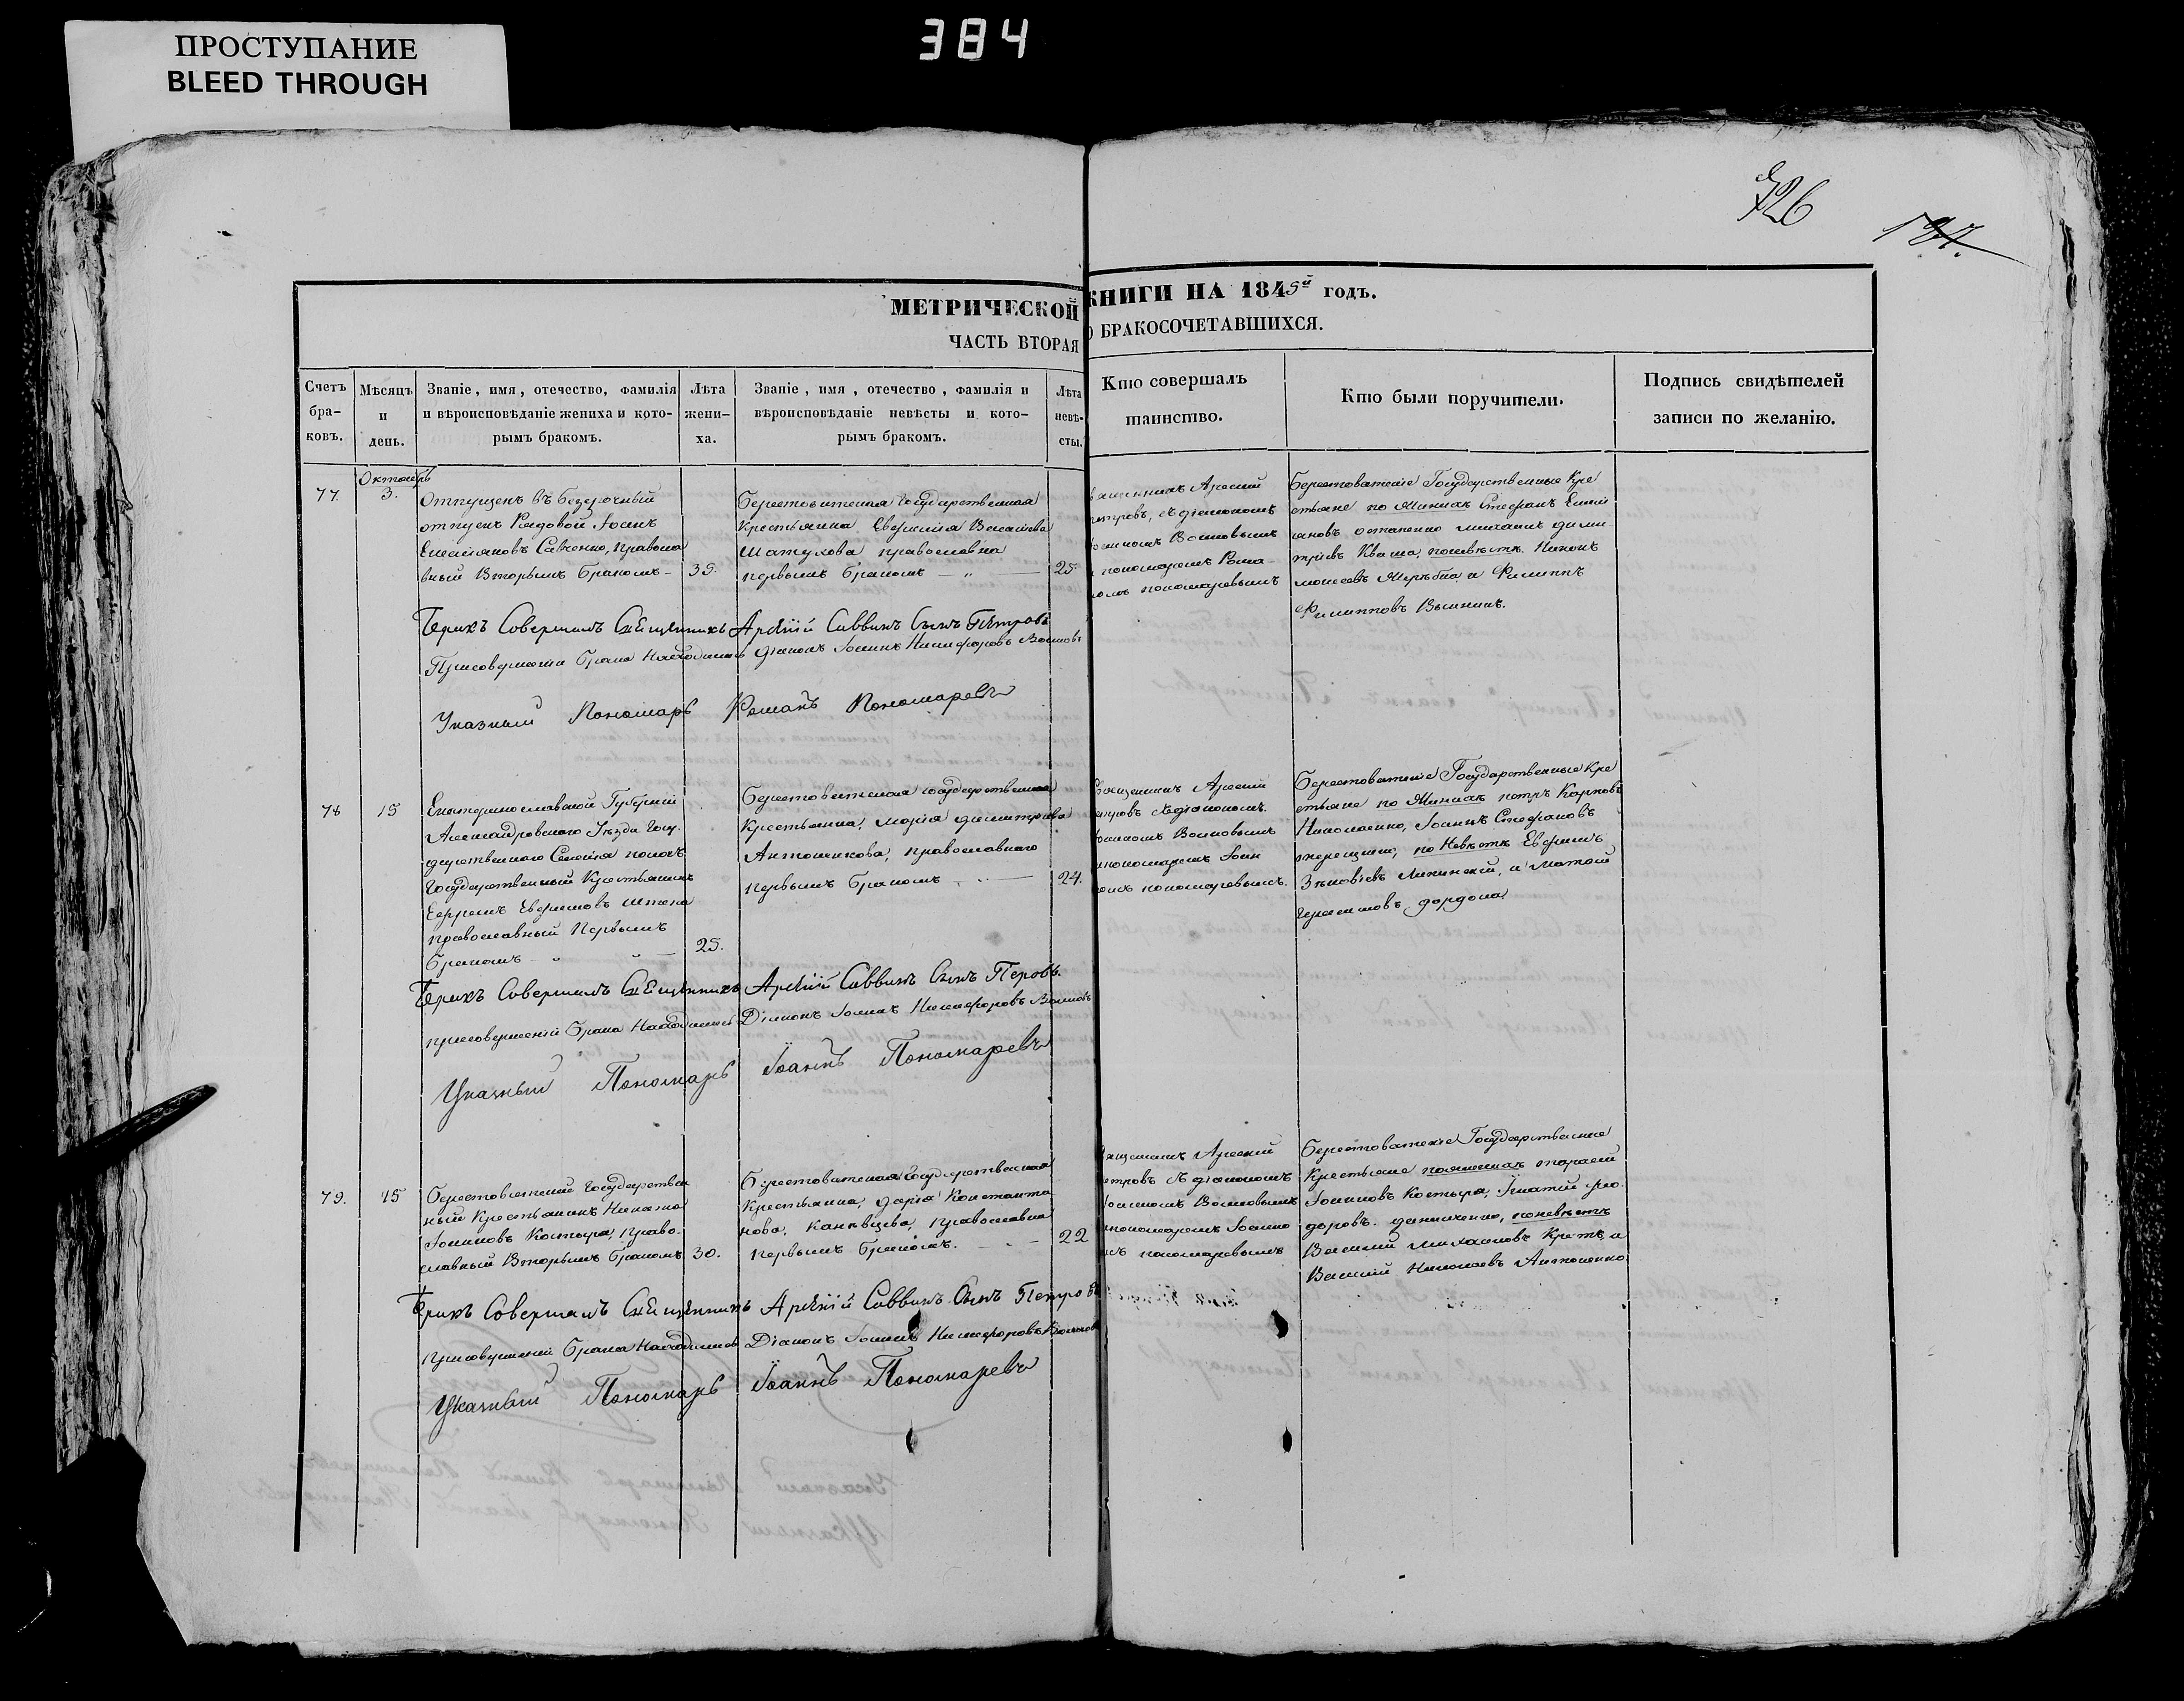 ПРОСТУПАНИЕ
BLEED THROUGH
384
726
187.
МЕТРИЧЕСКОЙ КНИГИ НА 1845й годъ.
ЧАСТЬ ВТОРАЯ О БРАКОСОЧЕТАВШИХСЯ.
Счетъ
бра-
ковъ.
Мѣсяцъ
и
день.
Званіе, имя, отечество, фамилія
и вѣроисповѣданіе жениха и кото-
рымъ бракомъ.
Лѣта
жени-
ха.
Званіе, имя, отечество, фамилія и
вѣроисповѣданіе невѣсты и кото-
рымъ бракомъ.
Лѣта
невѣ-
сты.
Кто совершалъ
таинство.
Кто были поручители.
Подпись свидѣтелей
записи по желанію.
77.
Октоабрь
3.
Отпущенъ въ безсрочный
отпускъ Рядовой Іоаннъ
Емельяновъ Савченко, правосла
вный Вторымъ бракомъ
35.
Берестоватская государственная
Крестьянка, Евфимія Васильева
Шатухова православна
первымъ бракомъ
25
священникъ Арсеній
Петровъ, съ діакономъ
Іоанномъ Воиновымъ
и пономаремъ Рома-
номъ пономаревымъ
Берестоватскіе Государственные Кре
стьяне по Женихѣ Стефанъ Емелі
яновъ остапенко михаилъ дими
тріевъ Кваша, поневѣстѣ. Никонъ
моисеевъ Жеребка и Филиппъ
Филипповъ Вынникъ.
Бракъ Совершалъ Священникъ Арсеній Саввинъ Сынъ Петровъ
Присовершеніи брака Находился діаконъ Іоаннъ Никифоровъ Воиновъ
Указный Пономарь Романъ Пономаревъ
78
15
Екатеринославской Губерніи
Александровского Уѣзда Госу-
дарственного Селенія пологъ
Государственный Крестьянинъ
Ефремъ Евфимовъ Штепа
православный Первымъ
бракомъ
25.
Берестоватская государственная
Крестьянка, марія димитріева
Антоникова, православного
первымъ бракомъ
24.
Священникъ Арсеній
Петровъ съдіакономъ.
Іоанномъ Воиновымъ
ипономаремъ Іоан
номъ пономаревымъ.
Берестоватскіе Государственные Кре
стьяне по Женихѣ петръ Карповъ
Николаенко, Іоаннъ Стефановъ
терещенко, по Невѣстѣ Евфимъ
Зѣновіевъ Липинскій, и матвѣй
герасимовъ дордопа
Бракъ Совершалъ Священникъ Арсеній Саввинъ Сынъ Перовъ.
присовершеніи брака Находился Діаконъ Іоаннъ Никифоровъ Воиновъ
Указный Пономарь Іоаннъ Пономаревъ
79.
15
Берестоватскій Государствен
ный Крестьянинъ Никита
Іоанновъ Костыря, право-
славный Вторымъ бракомъ
30.
Берестоватская Государственная
Крестьянка, дарія Константи
нова, Канѣвцева, православна
первымъ бракомъ.
22
Священникъ Арсеній
Петровъ съдіакономъ
Іоанномъ Воиновымъ
ипономаремъ Іоанно
мъ пономаревымъ
Берестоватскіе Государственные
Крестьяне поженихѣ тарасій
Іоанновъ Костыря, Игнатій Ѳео-
доровъ. данильченко, поневѣстѣ
Василій михаиловъ Кретъ и
Василій Николаевъ Антоненко
Бракъ Совершалъ Священникъ Арсеній Саввинъ Сынъ Петровъ
присовершеніи брака Находился Діаконъ Іоаннъ Никифоровъ Воиновъ
Указный Пономарь Іоаннъ Пономаревъ